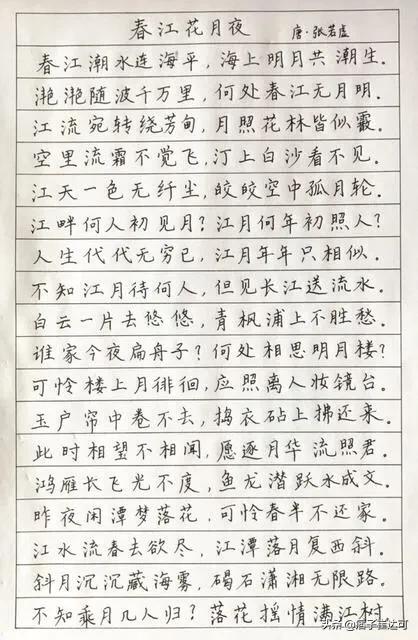 春江花月夜 唐·张若虚
春江潮水连海平，海上明月共潮生。
滟滟随波千万里，何处春江无月明。
江流宛转绕芳甸，月照花林皆似霰。
空里流霜不觉飞，汀上白沙看不见。
江天一色无纤尘，皎皎空中孤月轮。
江畔何人初见月？江月何年初照人？
人生代代无穷已，江月年年只相似。
不知江月待何人，但见长江送流水。
白云一片去悠悠，青枫浦上不胜愁。
谁家今夜扁舟子？何处相思明月楼？
可怜楼上月徘徊，应照离人妆镜台。
玉户帘中卷不去，捣衣砧上拂还来。
此时相望不相闻，愿逐月华流照君。
鸿雁长飞光不度，鱼龙潜跃水成文。
昨夜闲潭梦落花，可怜春半不还家。
江水流春去欲尽，江潭落月复西斜。
斜月沉沉藏海雾，碣石潇湘无限路。
不知乘月几人归？落花摇情满江树。